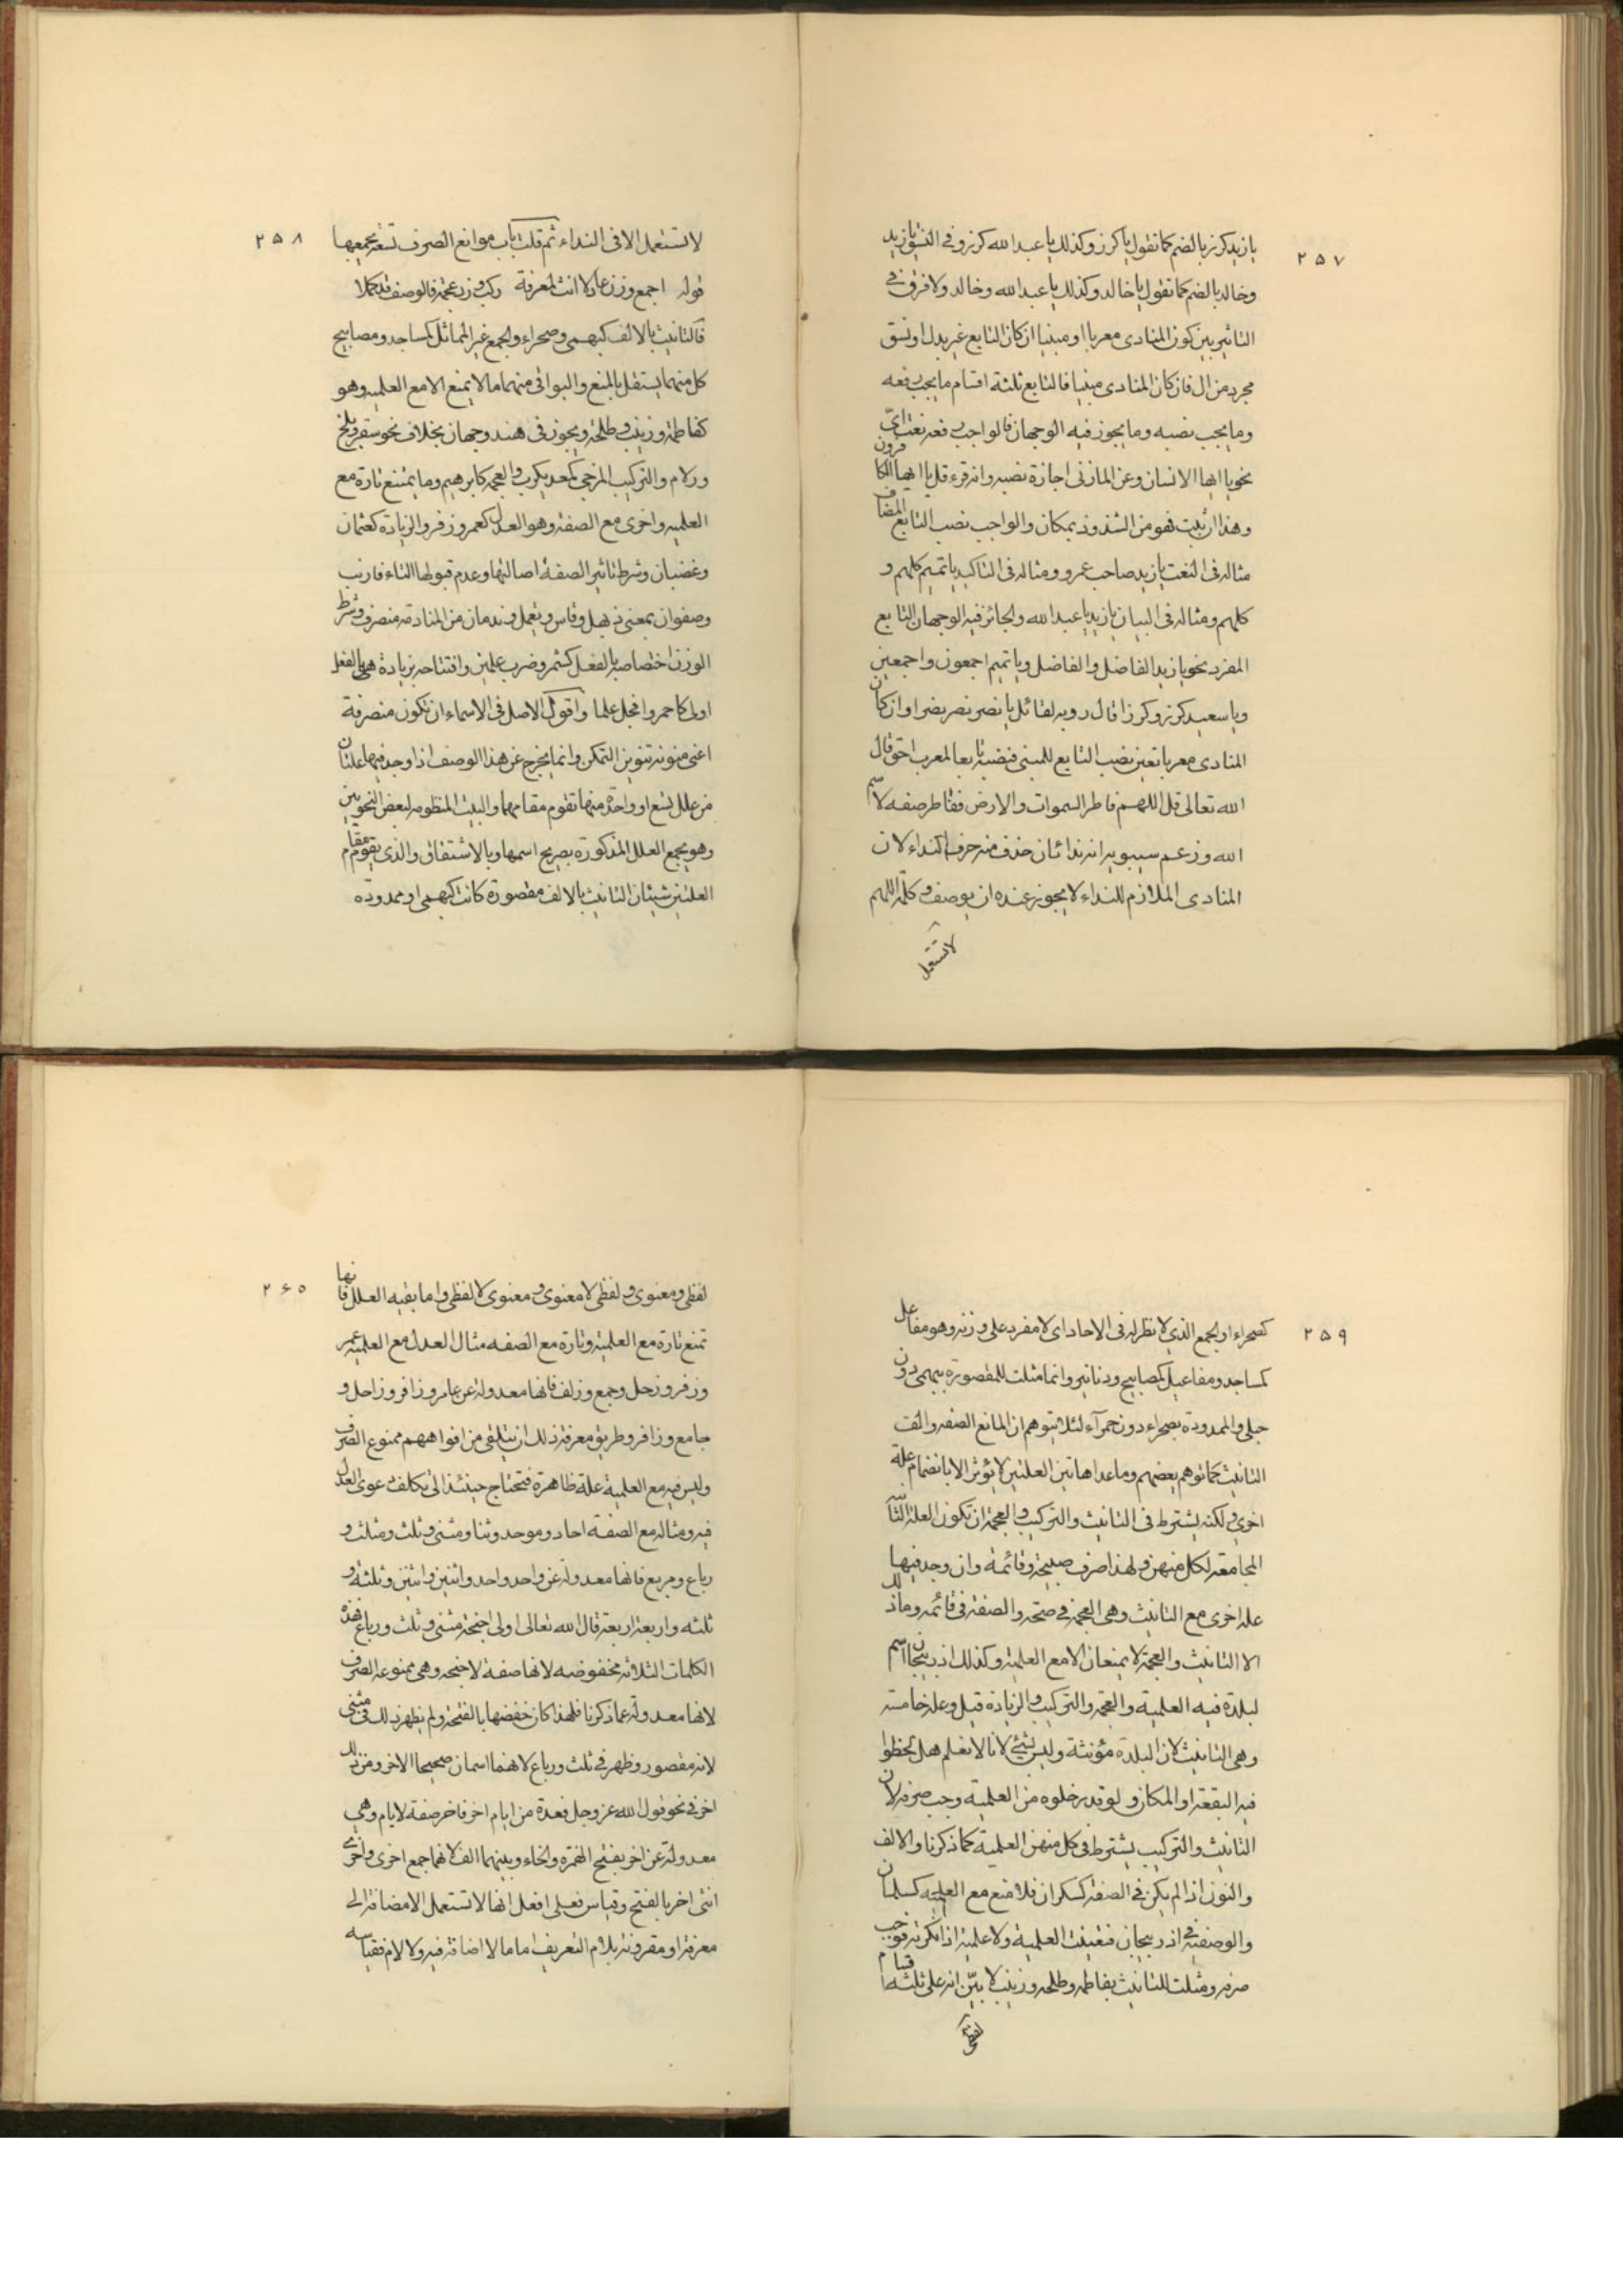 ٢٥٧
يا زيد كرز بالضم كما تقول يا كرز وكذلك يا عبدالله كرز وفي النسق يا زيد
وخالد بالضم كما تقول يا خالد وكذلك يا عبدالله وخالد ولا فرق في
التاثير بين كون المنادى معربا او مبنيا ان كان التابع غير بدل او نسق
مجرد من ال فان كان المنادى مبنيا فالتابع ثلثة اقسام ما يجب رفعه
وما يجب نصبه وما يجوز فيه الوجهان فالواجب رفعه نعت ايّ
نحو يا ايها الانسان وعن المازنى اجازة نصبه وانه قرء قل يا ايها الكافرون
وهذا ان ثبت فهو من الشذوذ بمكان والواجب نصب التابع المضاف
مثاله فى النعت يا زيد صاحب عمرو ومثاله فى التاكيد يا تميم كلهم و
كلهم ومثاله فى البيان يا زيد يا عبدالله والجائز فيه الوجهان التابع
المفرد نحو يا زيد الفاضل والفاضل ويا تميم اجمعون واجمعين
ويا سعيد كرز وكرزا قال رويه لقائل يا نصر نصر نصرا وان كان
المنادى معربا تعين نصب التابع للمبنى فنصبه تابعا لمعرب احق قال
الله تعالى قل اللهم فاطر السموات والارض ففاطر صفه لاسم
الله وزعم سيبويه انه نداء ثان حذف منه حرف النداء لان
المنادى الملازم للنداء لا يجوز عنده ان يوصف وكلمة اللهم
لا تستعمل
٢٥٨
لا تستعمل الا فى النداء ثم قلت باب موانع الصرف تسعة يجمعها
قوله اجمع وزن عادلا انث بمعرفة ركب وزد عجمة فالوصف قد كملا
فالتانيث بالالف كبهمى وصحراء والجمع غير المماثل كمساجد ومصابيح
كل منهما يستقل بالمنع والبواقى منهما ما لا يمنع الا مع العلميه وهو
كفاطمة وزينب وطلحة ويجوز فى هند وجهان بخلاف نحو سقر وبلخ
وزلام والتركيب المزجى كمعديكرب والعجمه كابرهيم وما يمتنع تارة مع
العلميه واخرى مع الصفة وهو العدل كعمر وزفر والزيادة كعثمان
وغضبان وشرط تاثير الصفة اصالتها وعدم قبولها التاء فارنب
وصفوان بمعنى ذيهل وقاس ويعمل وندمان من المنادمة منصرف وشرط
الوزن اختصاصه بالفعل كشمر وضرب علمين وافتتاحه بزيادة هي بالفعل
اولى كاحمر وافكل علما واقول الاصل فى الاسماء ان تكون منصرفة
اعنى منونة تنوين التمكن وانما يخرج عن هذا الوصف اذا وجد فيها علتان
من علل تسع او واحدة منها تقوم مقامهما والبيت المنظوم لبعض النحويين
وهو يجمع العلل المذكورة بصريح اسمها وبالاشتقاق والذى يقوم مقام
العلتين شيئان التانيث بالالف مقصورة كانت كبهمى او ممدوده
٢٥٩
كصحراء او الجمع الذي لا نظير له فى الاحاد اى لا مفرد على وزنه وهو مفاعل
كمساجد ومفاعيل كمصابيح ودنانير وانما مثلت للمقصورة ببهمى دون
حبلى والممدودة بصحراء دون حمرآء لئلا يتوهم ان المانع الصفه والف
التانيث كما توهم بعضهم وما عدا هاتين العلتين لا يؤثر الا بانضمام علة
اخرى ولكنه يشترط فى التانيث والتركيب والعجمة ان تكون العلة الثانية
المجامعة لكل منهن ولهذا صرف صبيحة وقائمة وان وجد فيها
علة اخرى مع التانيث وهى العجمة في صنجة والصفة فى قائمة وما ذلك
الا التانيث والعجمة لا يمنعان الا مع العلمية وكذلك اذربيجان اسم
لبلدة فيه العلمية والعجمة والتركيب والزيادة قيل وعلة خامسة
وهى التانيث لان البلدة مؤنثة وليس بشئ لانا لا نعلم هل لحظوا
فيه البقعة او المكان ولو قدر خلوه من العلمية وجب صرفه لان
التانيث والتركيب يشترط فى كل منهن العلمية كما ذكرنا والالف
والنون اذا لم يكن في الصفة كسكران فلا تمنع مع العلميه كسلمان
والوصفية في اذربيجان فتعينت العلمية ولا علمية اذا نكرته فوجب
صرفه ومثلت للتانيث بفاطمة وطلحه وزينب لا بيّن انه على ثلثة اقسام
لفظي
٢۶٥
لفظى ومعنوى ولفظى لا معنوى ومعنوى لا لفظى واما بقيه العلل فانها
تمنع تارة مع العلمية وتارة مع الصفه مثال العدل مع العلميه عمر
وزفر وزحل وجمع وزلف فانها معدولة عن عامر وزافر وزاحل و
جامع وزافر وطريق معرفة ذلك ان يتلقى من افواههم ممنوع الصرف
وليس فيه مع العلمية علة ظاهرة فتحتاج حينئذ الى تكلف دعوى العدل
فيه ومثاله مع الصفة احاد وموحد وثنا ومثنى وثلث ومثلث و
رباع ومربع فانها معدولة عن واحد واحد واثنين واثنين وثلثة و
ثلثه واربعة اربعة قال الله تعالى اولى اجنحة مثنى وثلث ورباع فهذه
الكلمات الثلاثة مخفوضه لانها صفة لاجنحه وهى ممنوعه الصرف
لانها معدولة عما ذكرنا فلهذا كان خفضها بالفتحة ولم يظهر ذلك فى مثنى
لانه مقصور وظهر في ثلث ورباع لانهما اسمان صحيحا الاخر ومن ذلك
اخر في نحو قول الله عز وجل فعدة من ايام اخر فاخر صفة لايام وهي
معدولة عن اخر بفتح الهمزة والخاء وبينهما الف لانها جمع اخرى واخرى
انثى اخر بالفتح وقياس فعلى افعل انها لا تستعمل الا مضافة الى
معرفة او مقرونة بلام التعريف اما ما لا اضافة فيه ولا لام فقياسه